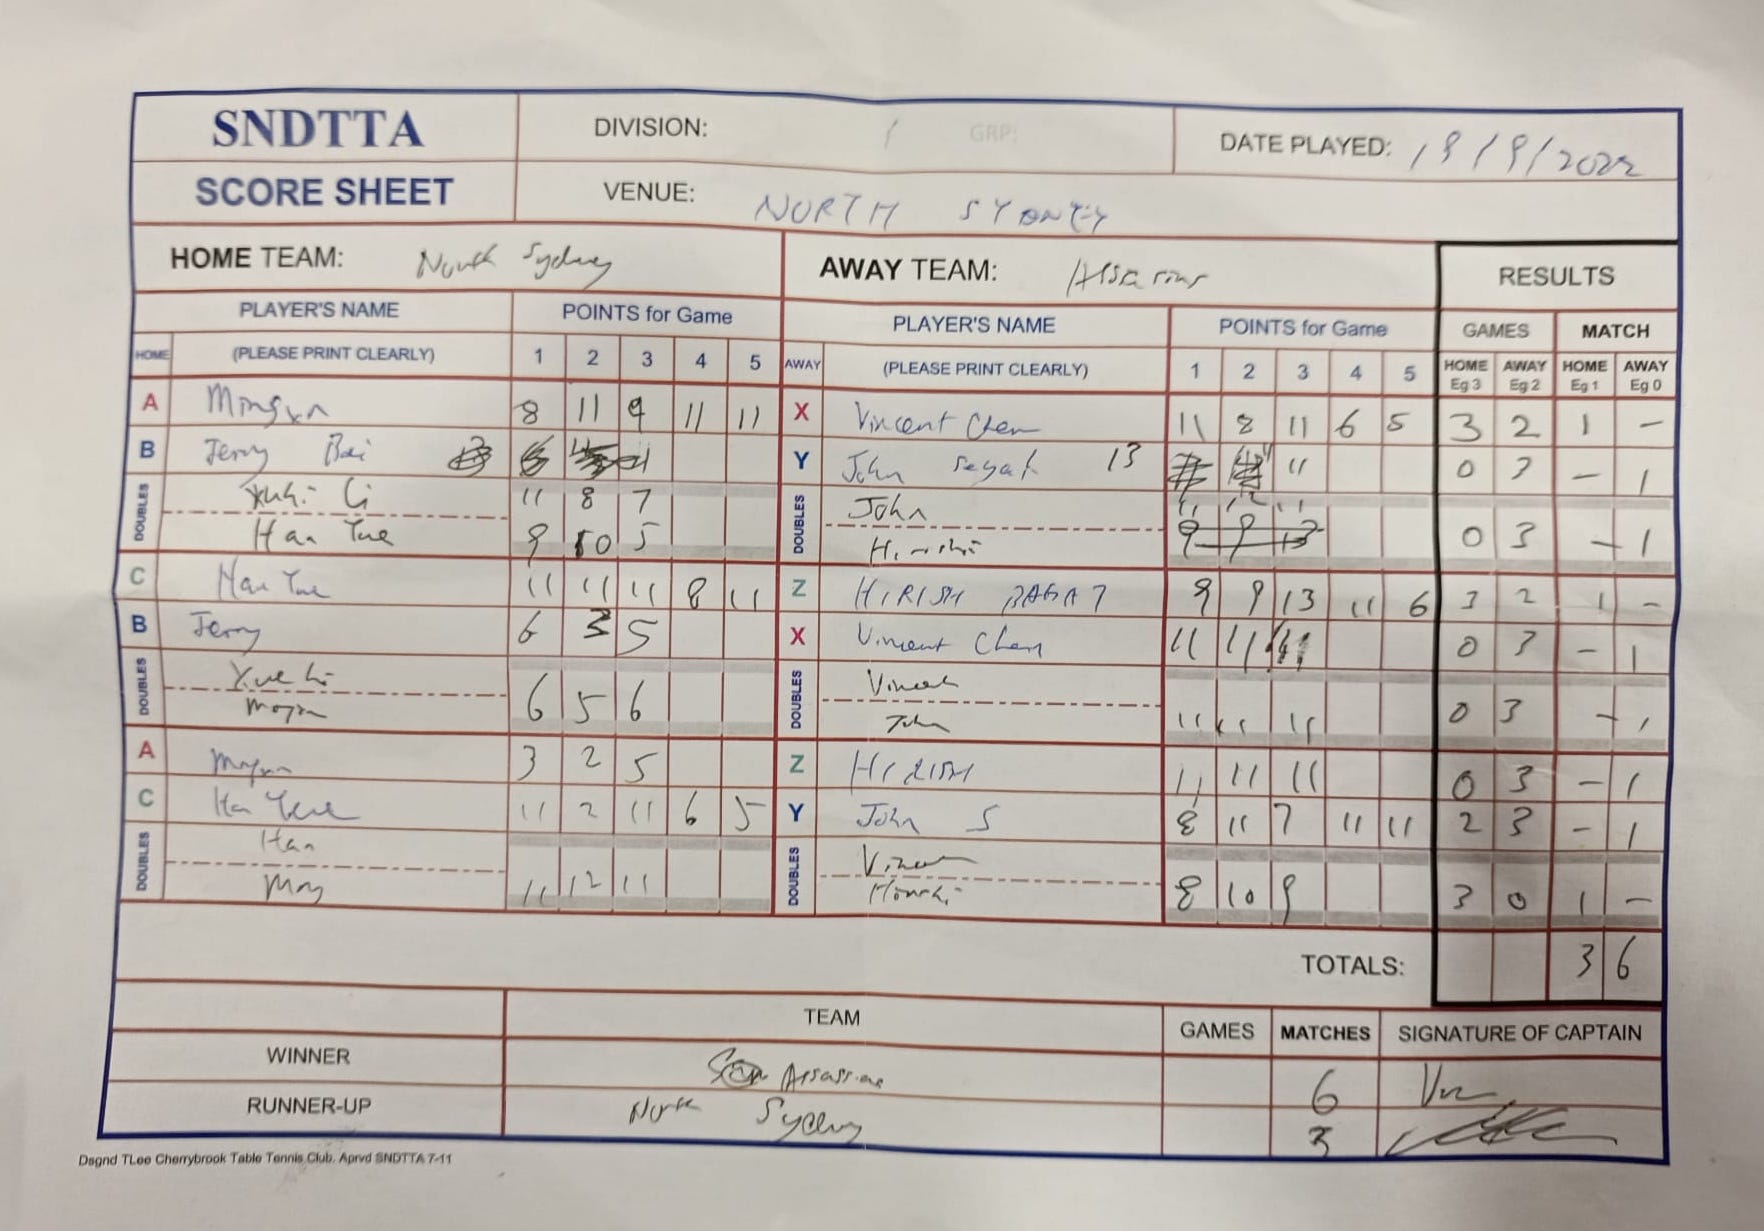 SNDTTA DIVISION: 1 GRP: DATE PLAYED: 19/9/2022
SCORE SHEET VENUE: NORTH SYDNEY
HOME TEAM: North Sydney AWAY TEAM: Assassins RESULTS
PLAYER'S NAME POINTS for Game PLAYER'S NAME POINTS for Game GAMES MATCH
HOME (PLEASE PRINT CLEARLY) 1 2 3 4 5 AWAY (PLEASE PRINT CLEARLY) 1 2 3 4 5 HOME Eg 3 AWAY Eg 2 HOME Eg 1 AWAY Eg 0
A 8 11 9 11 11 X Vincent Chen 11 8 11 6 5 3 2 1 -
B Jerry Bai Y John 13 11 0 3 - 1
DOUBLES 11 8 7 DOUBLES John 11 12 11
Han Yue 9 10 5 9 9 13 0 3 - 1
C Han Yue 11 11 11 8 11 Z HIRISH BAGAT 9 9 13 11 6 3 2 1 -
B Jerry 6 3 5 X Vincent Chen 11 11 11 0 3 - 1
DOUBLES DOUBLES
6 5 6 John 11 11 11 0 3 - 1
A 3 2 5 Z HIRISH 11 11 11 0 3 - 1
C Han Yue 11 2 11 6 5 Y John S 8 11 7 11 11 2 3 - 1
DOUBLES Han DOUBLES
11 12 11 8 10 9 3 0 1 -
TOTALS: 3 6
TEAM GAMES MATCHES SIGNATURE OF CAPTAIN
WINNER Assassins 6
RUNNER-UP North Sydney 3
Dsgnd TLee Cherrybrook Table Tennis Club. Aprvd SNDTTA 7-11